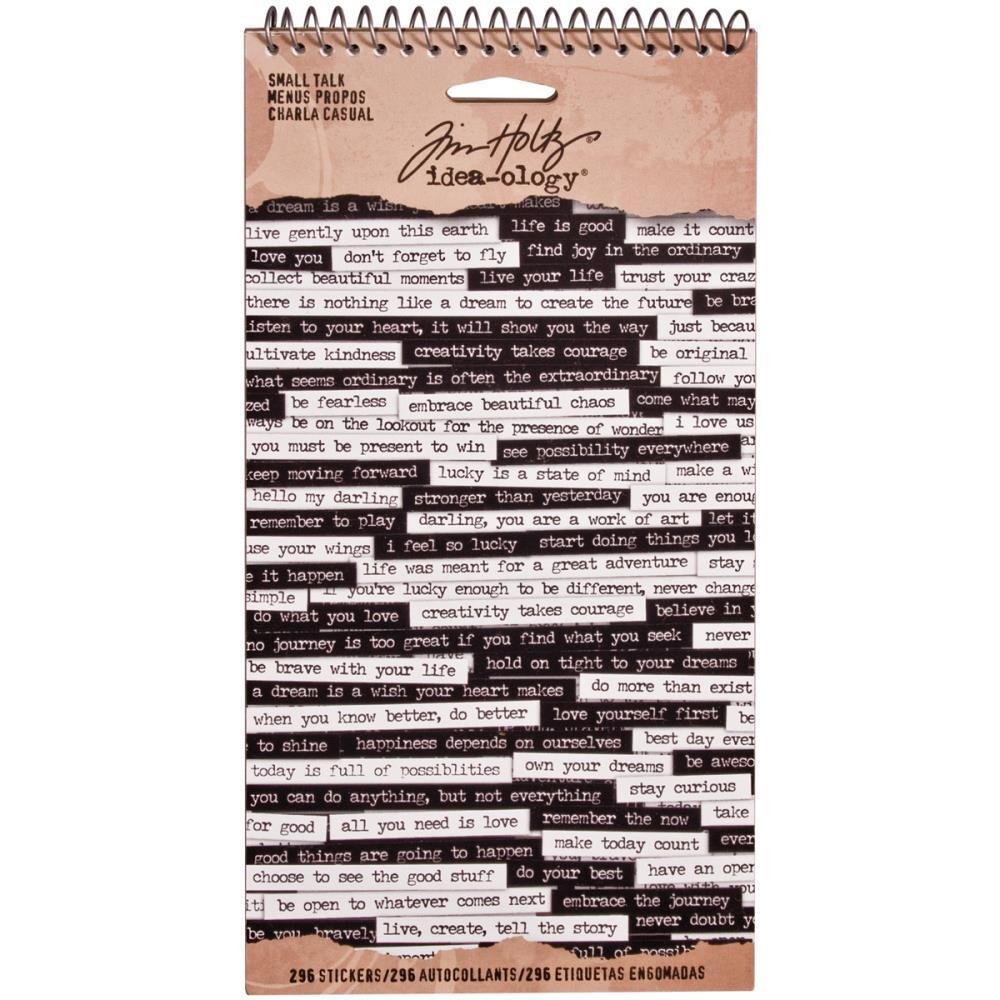 SMALL TALK
MENUS PROPOS
CHARLA CASUAL
Tim Holtz®
idea-ology®
a dream is a wish your heart makes
live gently upon this earth life is good make it count
love you don't forget to fly find joy in the ordinary
collect beautiful moments live your life trust your craz
there is nothing like a dream to create the future be bra
isten to your heart, it will show you the way just becau
ultivate kindness creativity takes courage be original
what seems ordinary is often the extraordinary follow you
zed be fearless embrace beautiful chaos come what may
ways be on the lookout for the presence of wonder i love us
you must be present to win see possibility everywhere
keep moving forward lucky is a state of mind make a wi
hello my darling stronger than yesterday you are enoug
remember to play darling, you are a work of art let it
use your wings i feel so lucky start doing things you lo
e it happen life was meant for a great adventure stay
simple if you're lucky enough to be different, never change
do what you love creativity takes courage believe in y
no journey is too great if you find what you seek never
be brave with your life hold on tight to your dreams
a dream is a wish your heart makes do more than exist
when you know better, do better love yourself first be
to shine happiness depends on ourselves best day ever
today is full of possiblities own your dreams be aweso
you can do anything, but not everything stay curious
for good all you need is love remember the now take
good things are going to happen make today count ever
choose to see the good stuff do your best have an open
iti be open to whatever comes next embrace the journey
be you, bravely live, create, tell the story never doubt yo
full of possib
296 STICKERS/296 AUTOCOLLANTS/296 ETIQUETAS ENGOMADAS